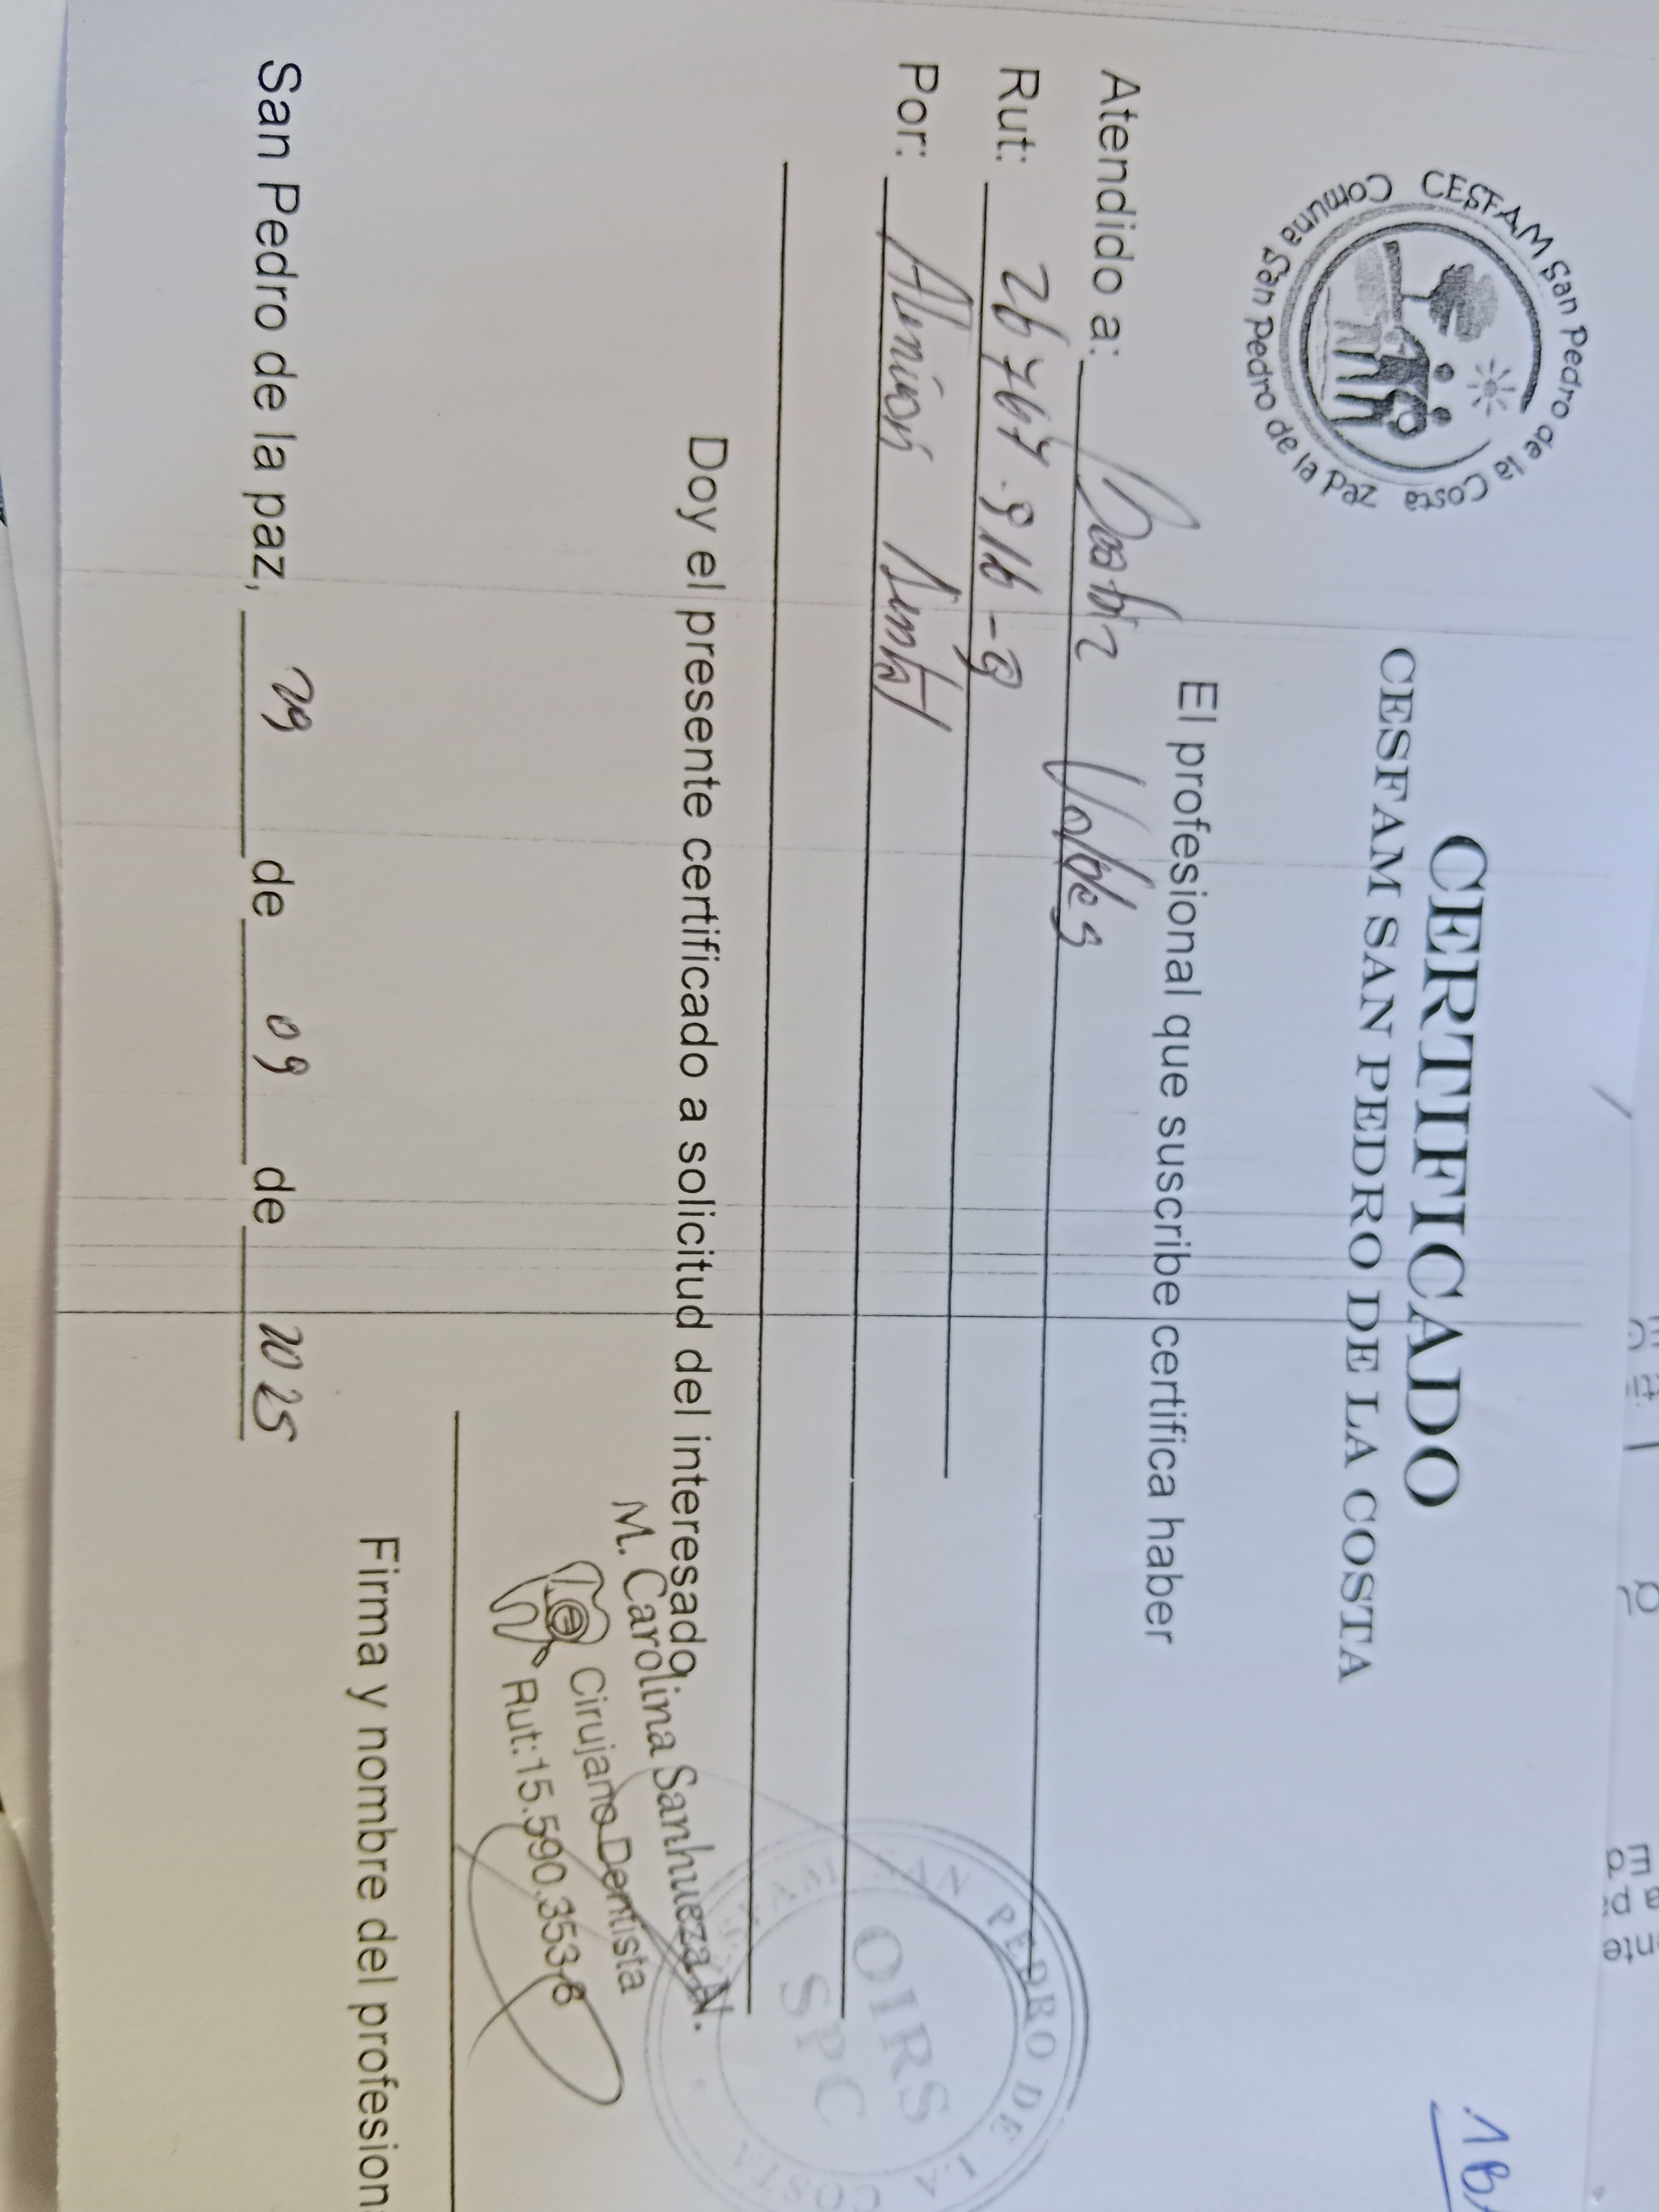 CERTIFICADO
CESFAM SAN PEDRO DE LA COSTA
CESFAM San Pedro de la Costa
Comuna San Pedro de la Paz
El profesional que suscribe certifica haber
Atendido a: Valdes
Rut: 26767.916-9
Por: Atención Dental
Doy el presente certificado a solicitud del interesado.
M. Carolina Sanhueza N.
Cirujano Dentista
Rut: 15.590.353-8
SAN PEDRO DE LA COSTA
OIRS
SPC
Firma y nombre del profesion
San Pedro de la paz, 29 de 09 de 2025